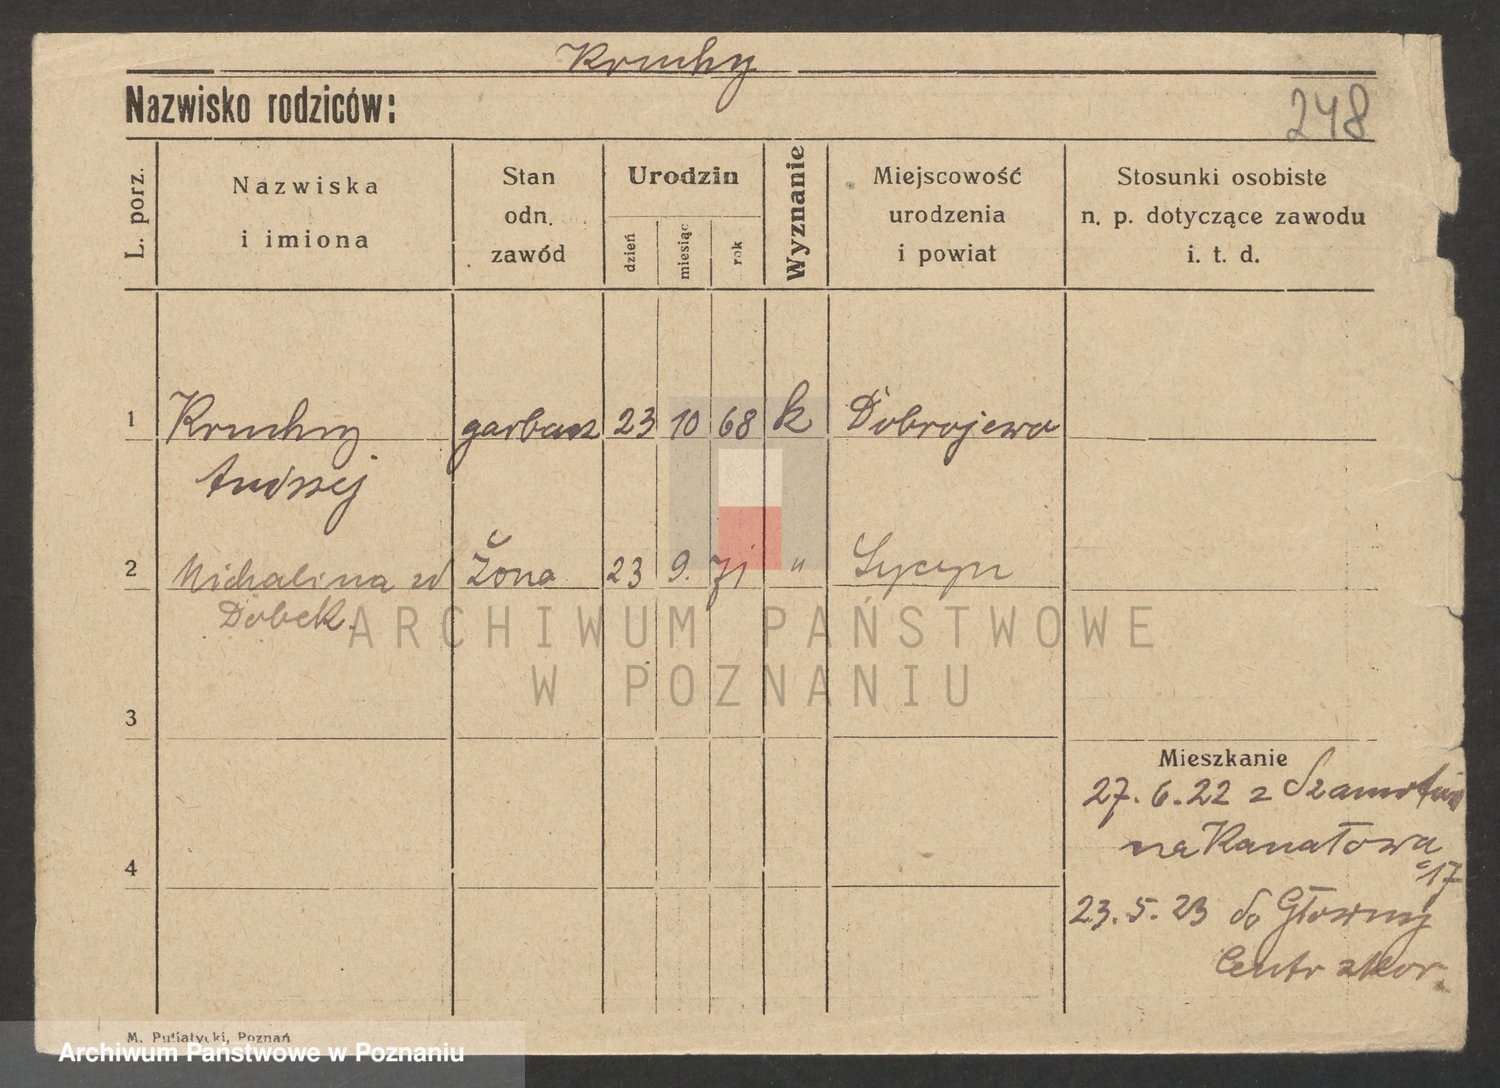 Kruchy
Nazwisko rodziców:
248
L. porz.
Nazwiska
i imiona
Stan
odn.
zawód
Urodzin
dzień
miesiąc
rok
Wyznanie
Miejscowość
urodzenia
i powiat
Stosunki osobiste
n. p. dotyczące zawodu
i. t. d.
1 Kruchy garbarz 23 10 68 k Dobrojewo
Andrzej
2 Michalina zd Żona 23 9. 71 "
Dobek.
ARCHIWUM PAŃSTWOWE
W POZNANIU
3
Mieszkanie
27. 6. 22 z Szamotuł
na Kanałowa
17
4
23. 5. 23 do Główny
Centr
M. Putiatycki, Poznań
Archiwum Państwowe w Poznaniu